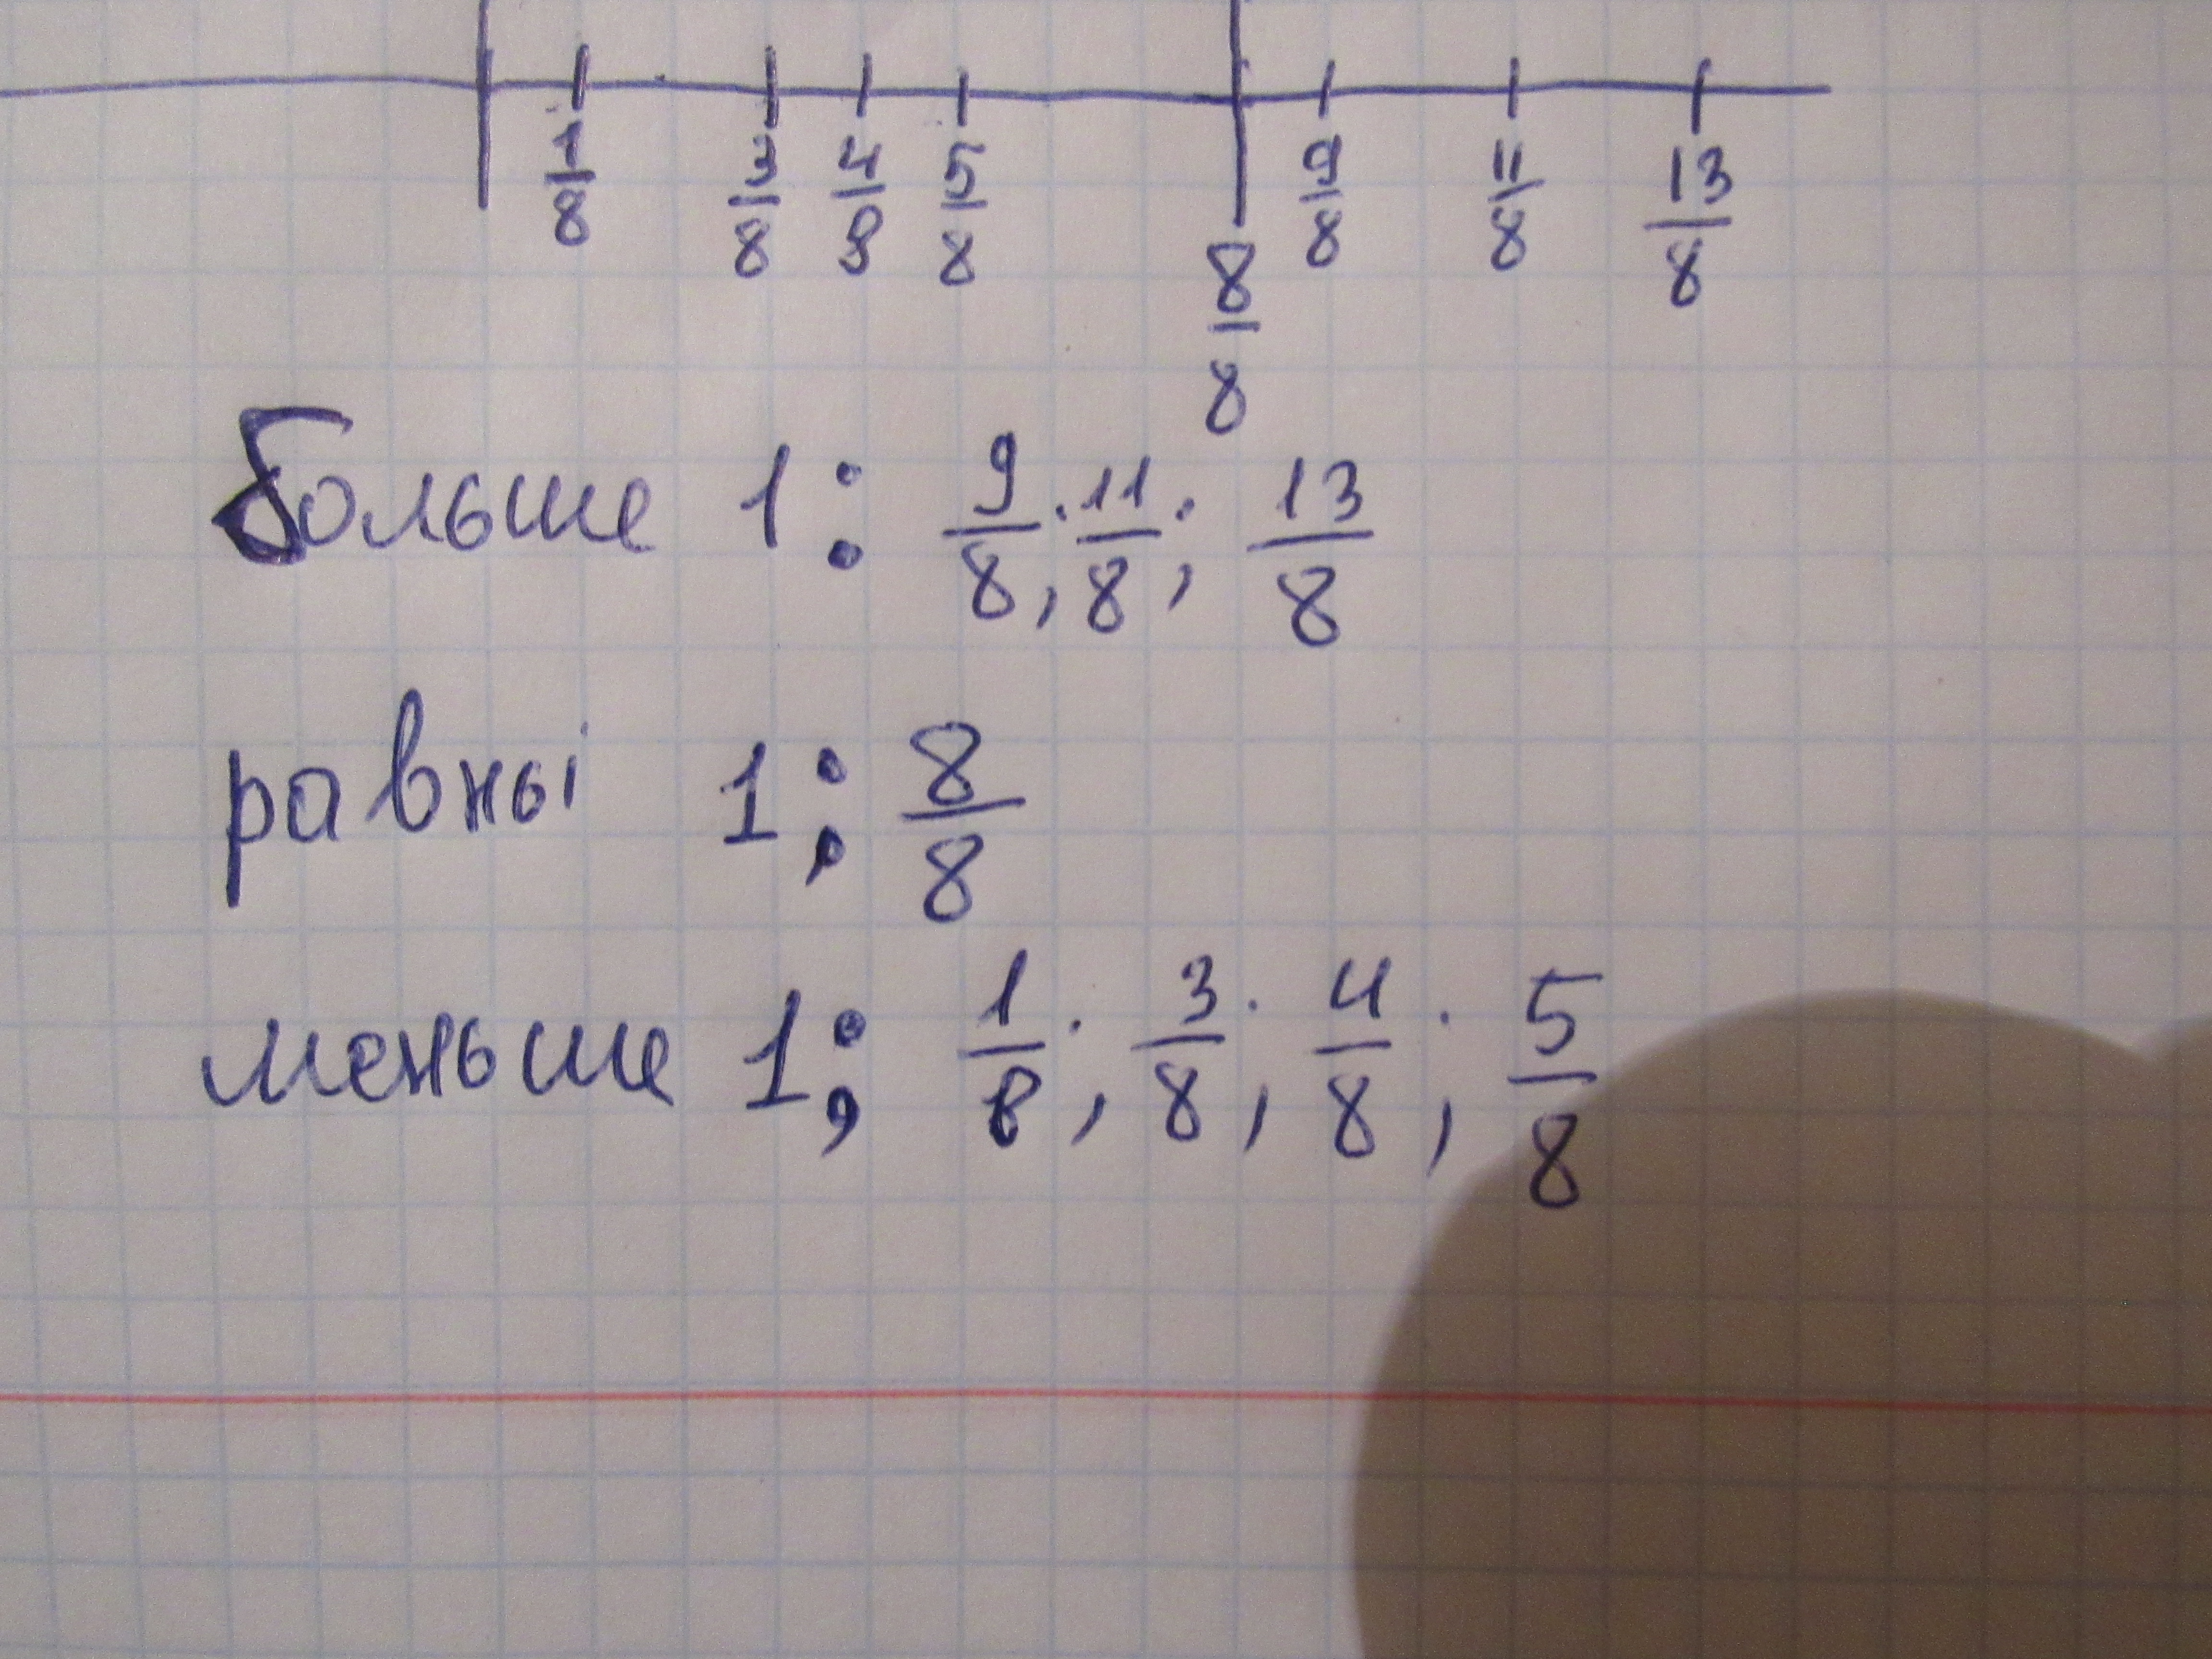 1/8 3/8 4/8 5/8 8/8 9/8 11/8 13/8
больше 1: 9/8; 11/8; 13/8
равны 1: 8/8
меньше 1: 1/8; 3/8; 4/8; 5/8